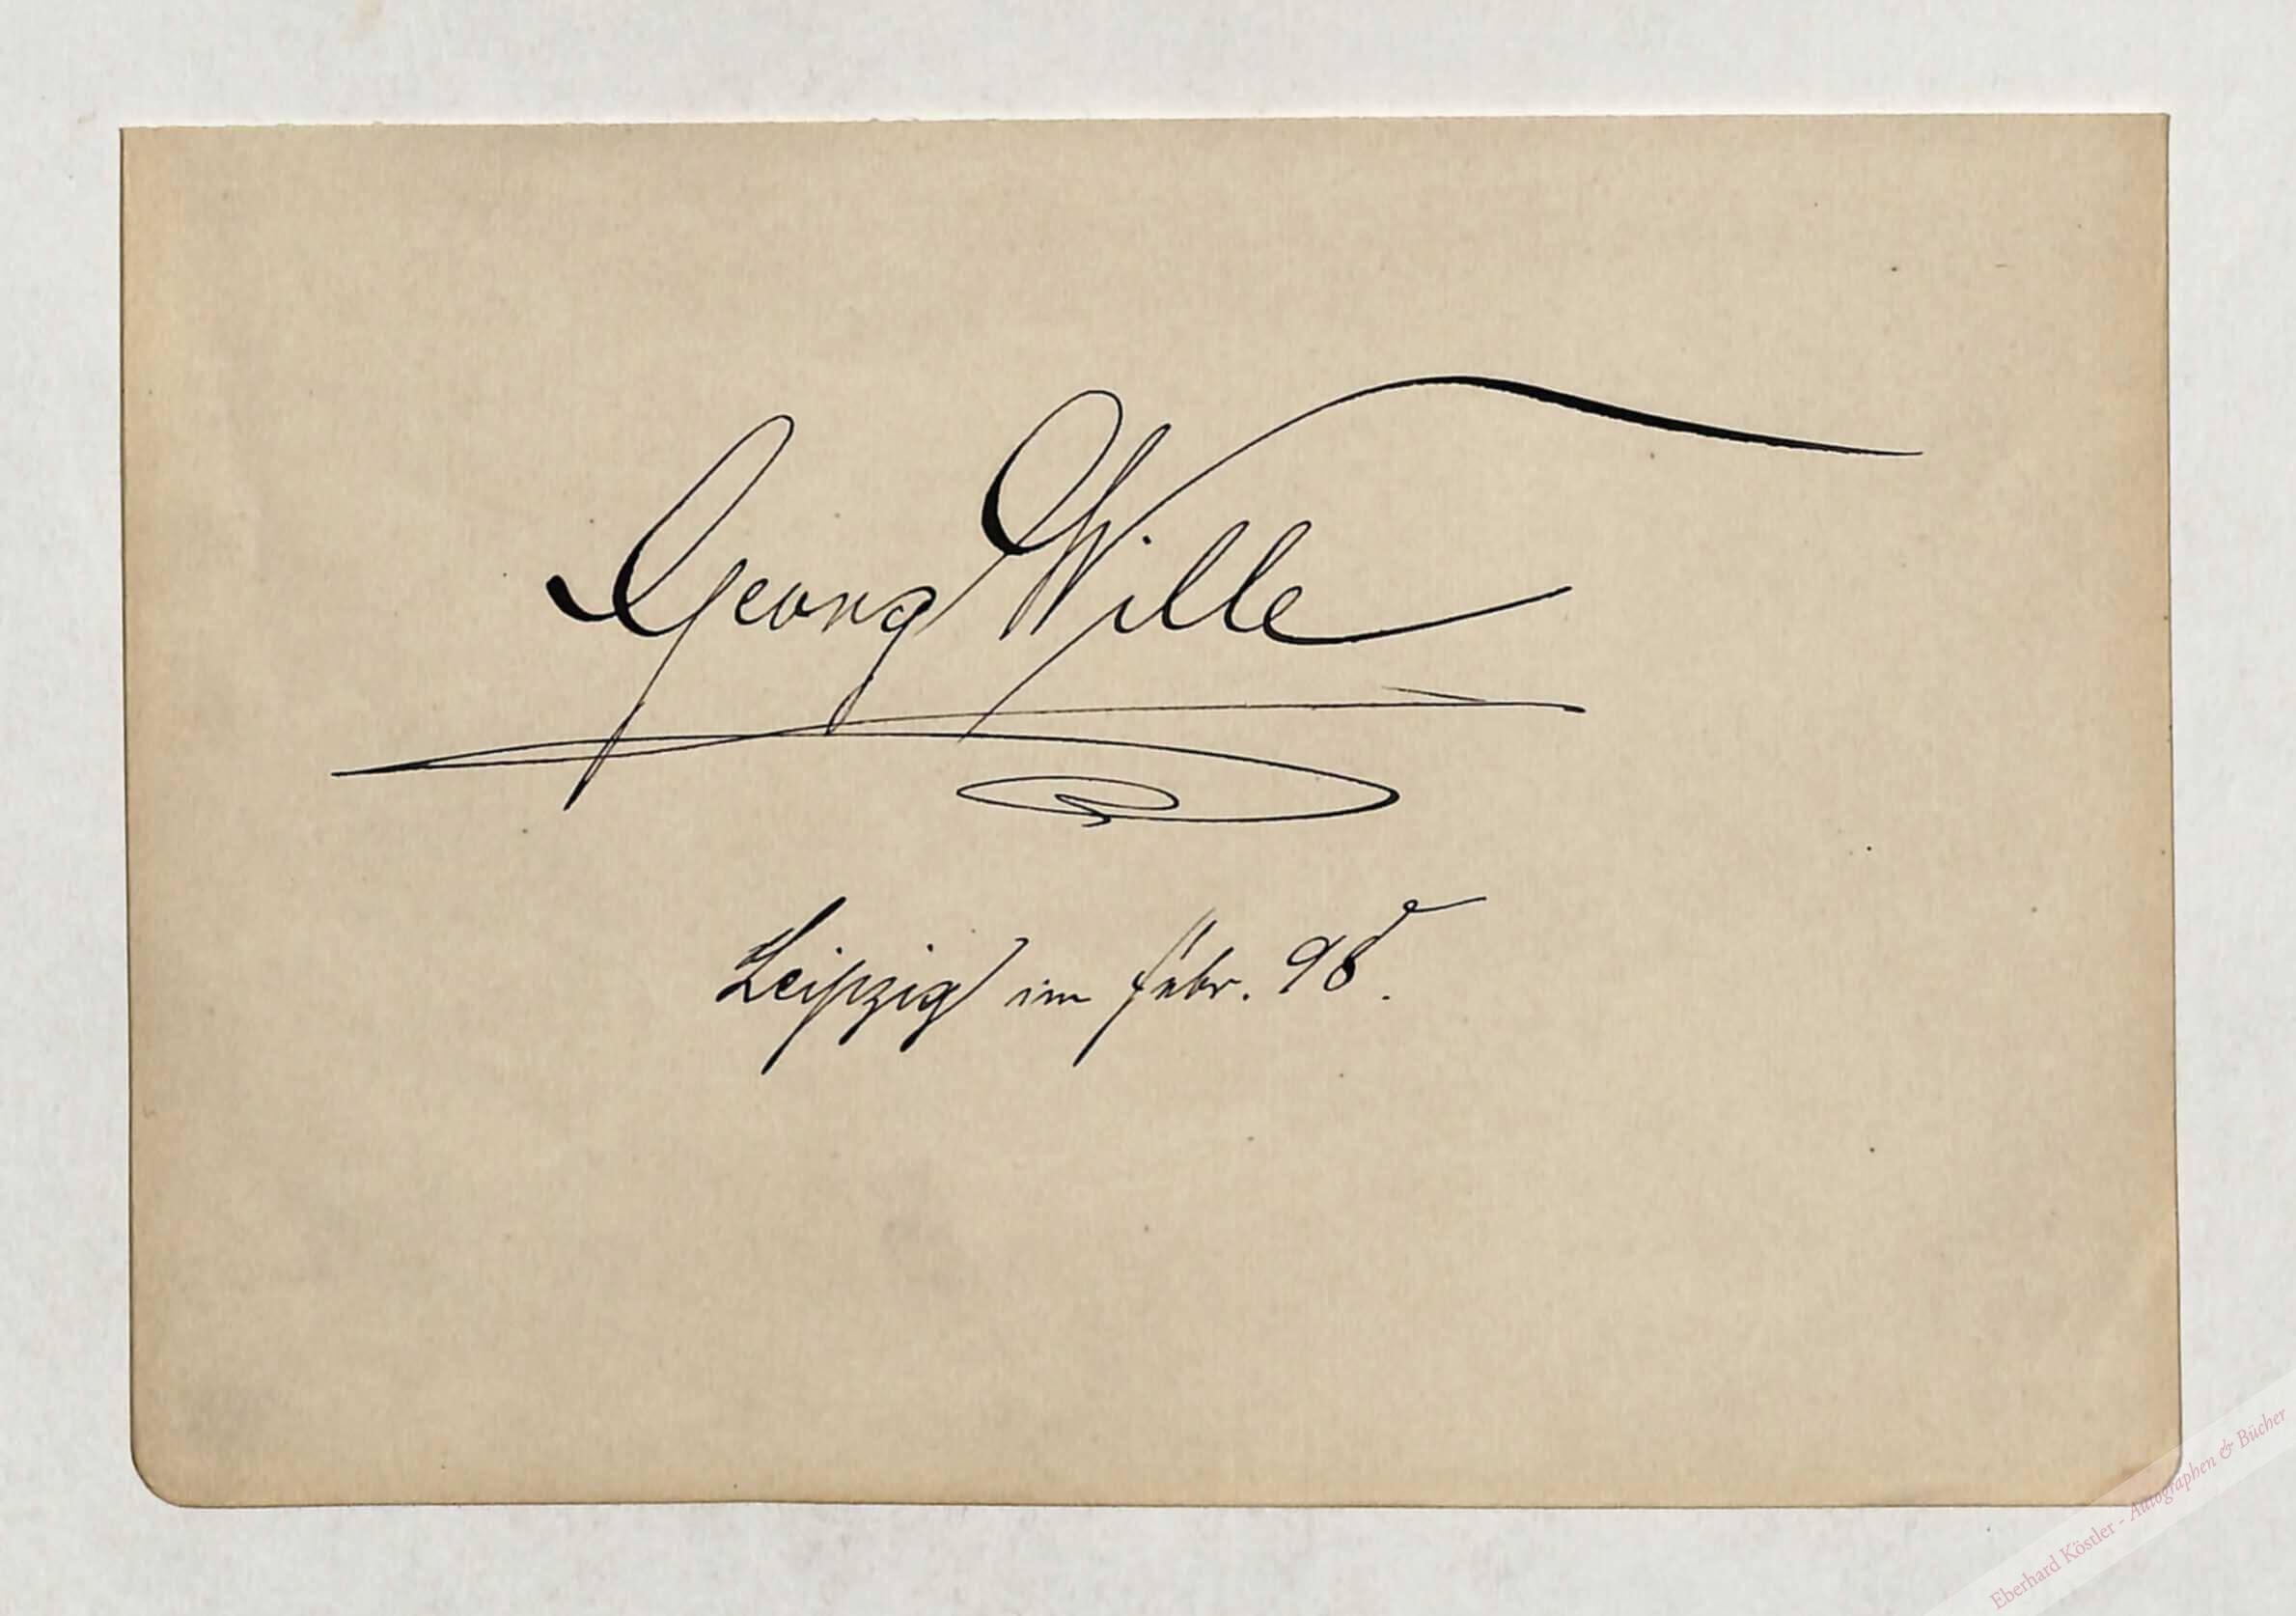 Georg Wille
Leipzig im Febr. 98.
Eberhard Köstler - Autographen & Bücher